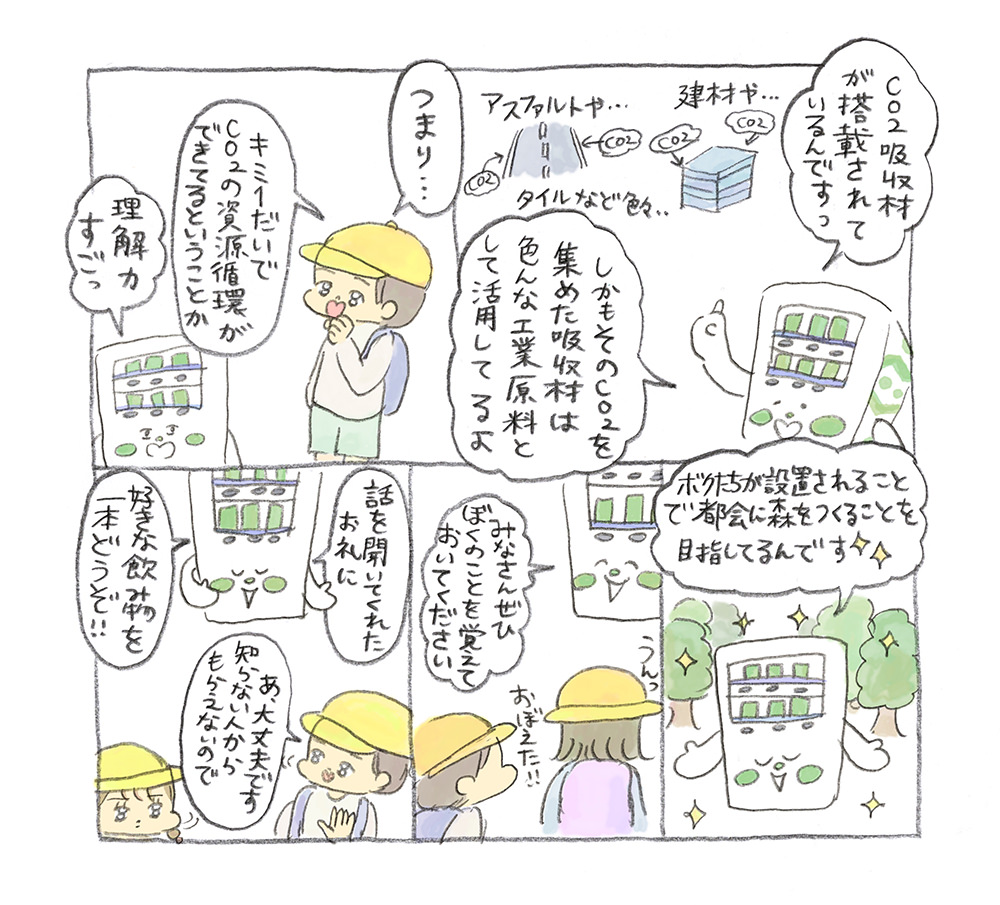 CO2吸収材
が搭載されて
いるんですっ
建材や...
CO2
CO2
アスファルトや...
CO2
CO2
タイルなど色々..
しかもそのCO2を
集めた吸収材は
色んな工業原料と
して活用してるよ
つまり...
キミ1だいで
CO2の資源循環が
できてるということか
理解力
すごっ
ボクたちが設置されること
で都会に森をつくることを
目指してるんです
みなさんぜひ
ぼくのことを覚えて
おいてください
うんっ
おぼえた!!
話を聞いてくれた
お礼に
好きな飲み物を
一本どうぞ!!
あ、大丈夫です
知らない人から
もらえないので